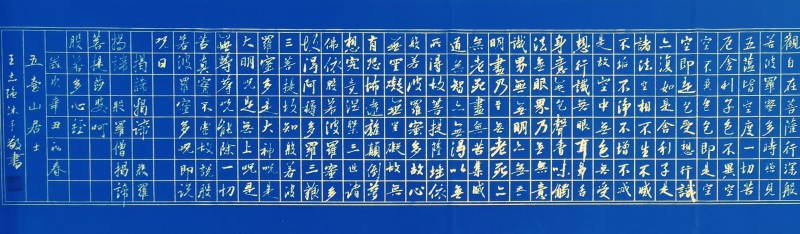 觀自在菩薩行深般
若波羅蜜多時照見
五蘊皆空度一切苦
厄舍利子色不異空
空不異色色即是空
空即是色受想行識
亦復如是舍利子是
諸法空相不生不滅
不垢不淨不增不減
是故空中無色無受
想行識無眼耳鼻舌
身意無色聲香味觸
法無眼界乃至無意
識界無無明亦無無
明盡乃至無老死亦
無老死盡無苦集滅
道無智亦無得以無
所得故菩提薩埵依
般若波羅蜜多故心
無罣礙無罣礙故無
有恐怖遠離顛倒夢
想究竟涅槃三世諸
佛依般若波羅蜜多
故得阿耨多羅三藐
三菩提故知般若波
羅蜜多是大神咒是
大明咒是無上咒是
無等等咒能除一切
苦真實不虛故說般
若波羅蜜多咒即說
咒曰
揭諦揭諦 般羅
揭諦 般羅僧揭諦
菩提薩婆訶
般若多心經
歲次辛丑初春
五臺山居士
王志沐手敬書